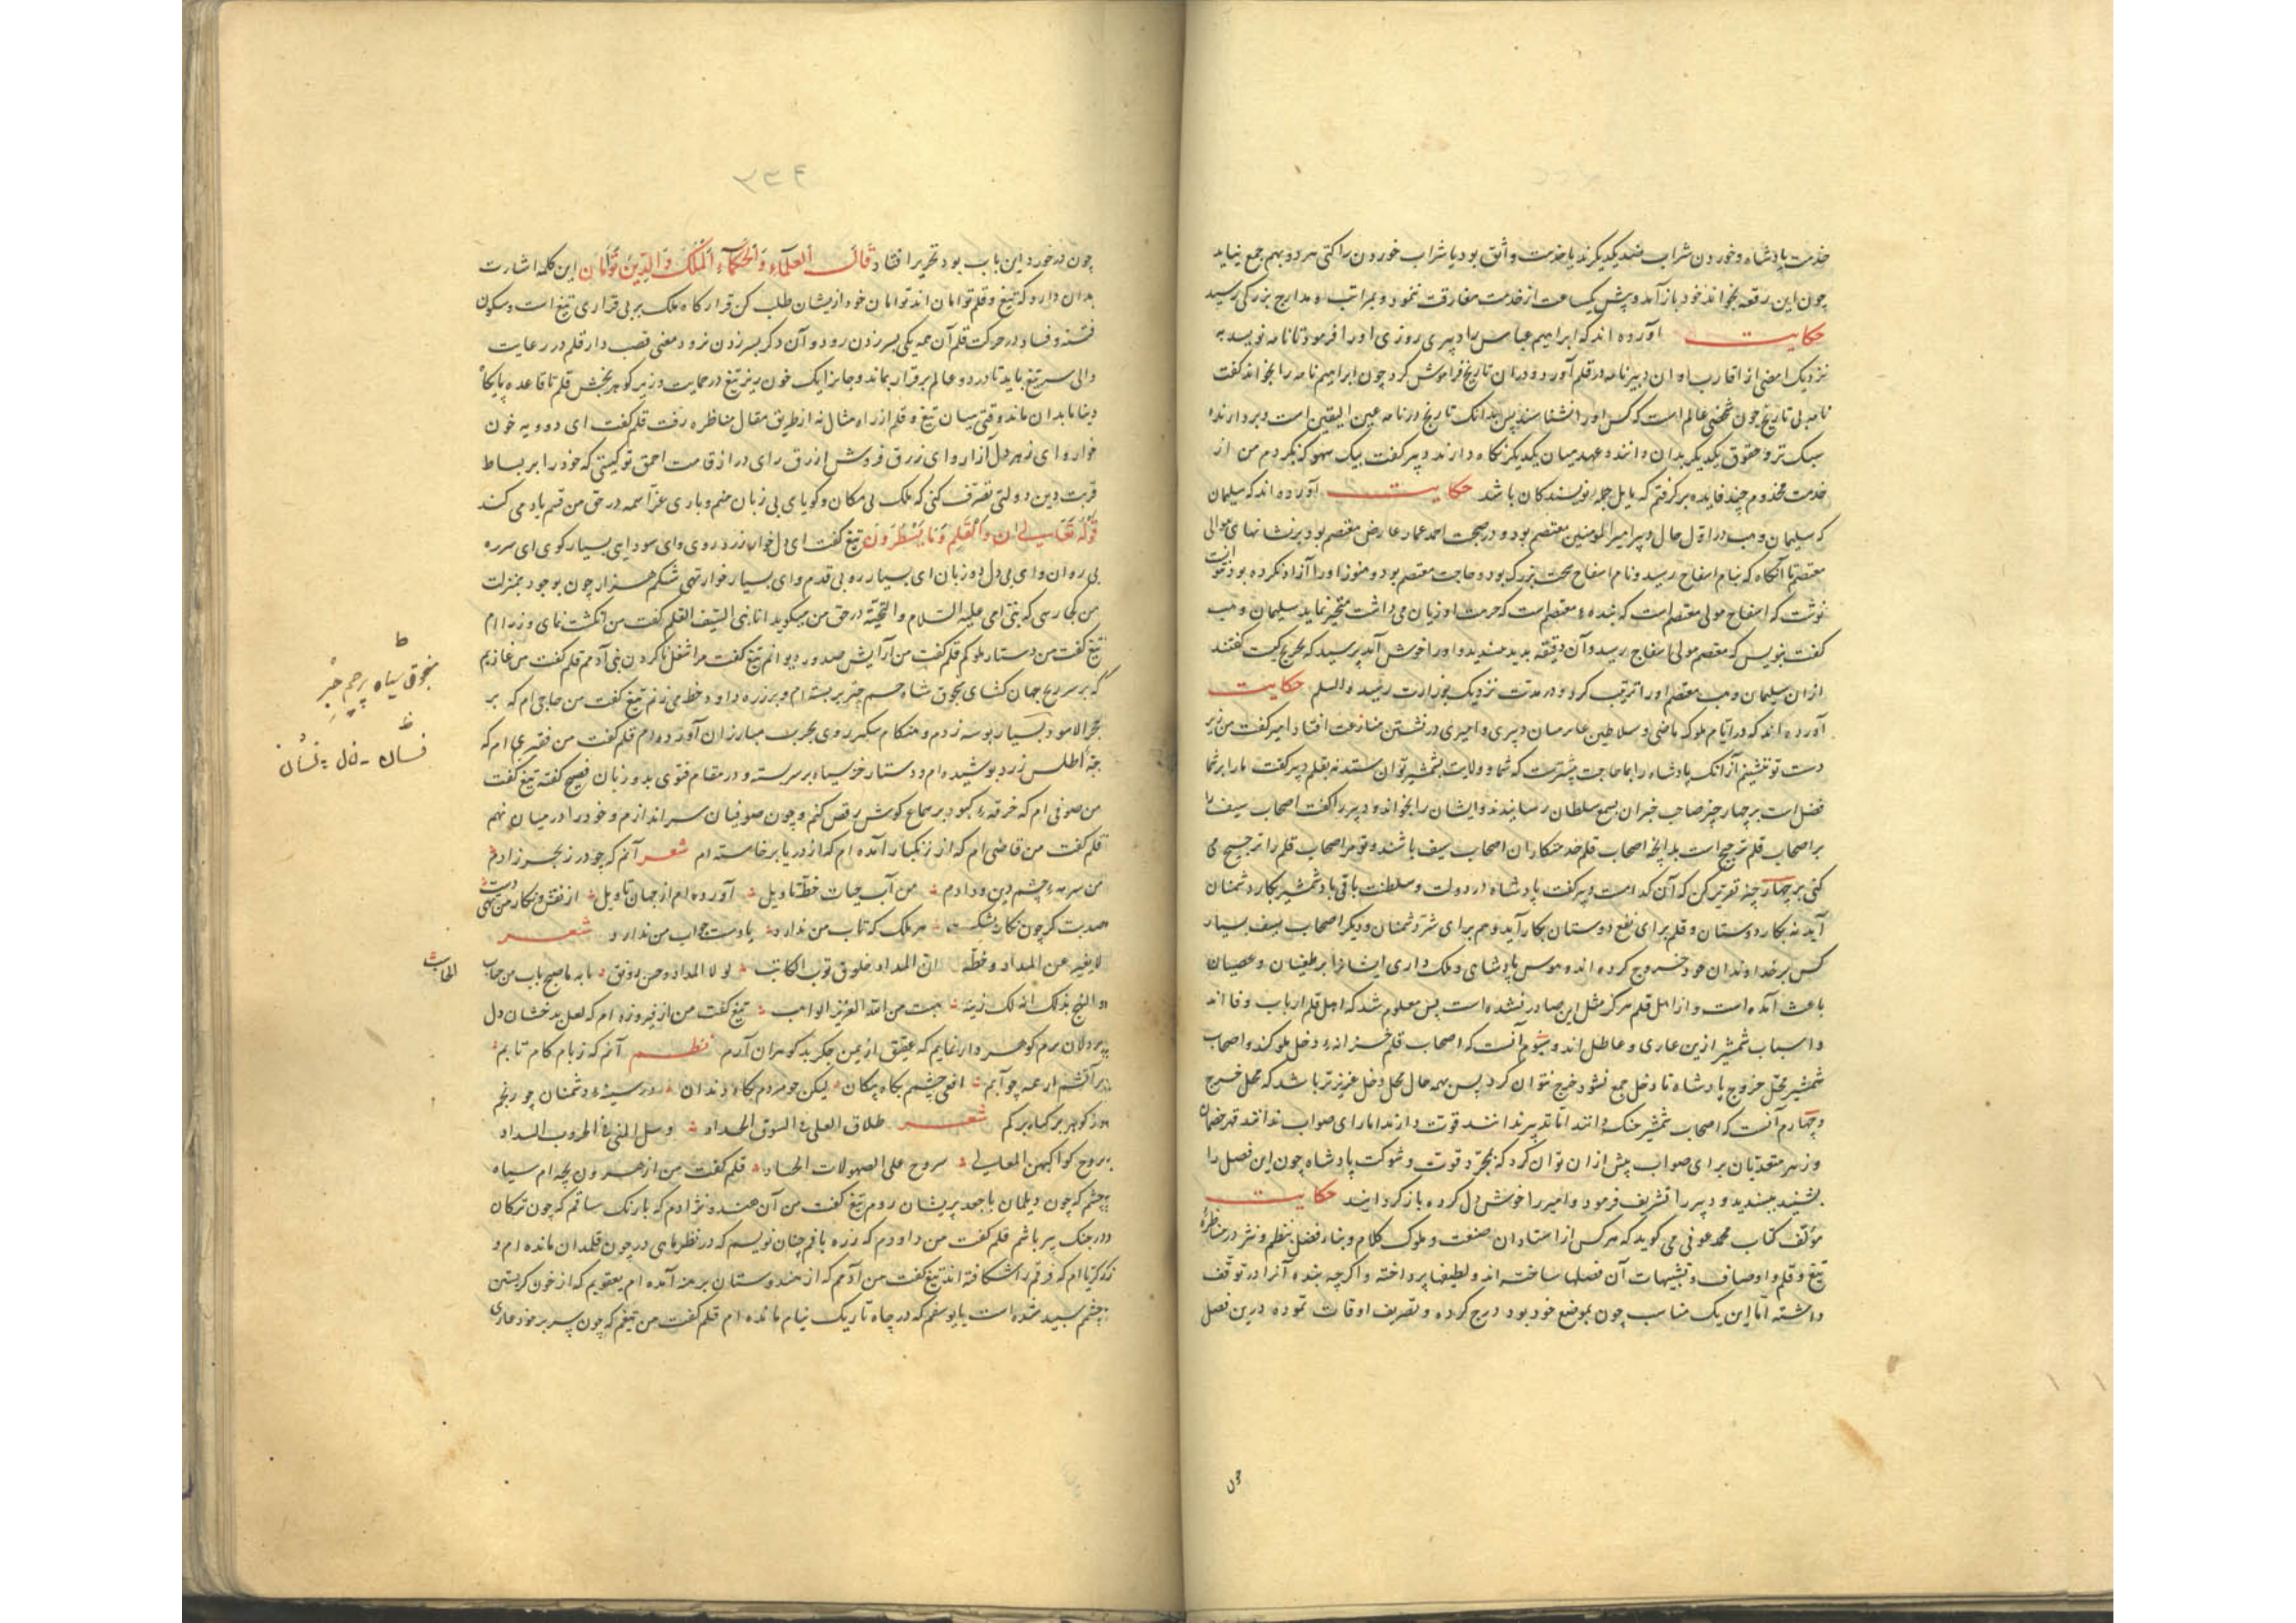 خدمت پادشاه و خوردن شراب ضد یکدیگرند یا خدمت واثق بود یا شراب خوردن را کنی هر دو بهم جمع نیاید
چون این رقعه بخواند خود باز آمد و پیش یکساعت از خدمت مفارقت ننمود و بمراتب و مدارج بزرگی رسید
حکایت آورده اند که ابراهیم عباس را دبیری روزی او را فرمود تا نامه نویسد به
نزدیک بعضی از اقارب او آن دبیر نامه در قلم آورد و در آن تاریخ فراموش کرد چون ابراهیم نامه را بخواند گفت
نامه بی تاریخ چون عالم است که کس او را نشناسد پس بدانک تاریخ در نامه عین الیقین است و بردارنده
سبک تر و حقوق یکدیگر بدان دانند و عهد میان یکدیگر نگاه دارند دبیر گفت بیک سهو که بکردم من از
خدمت مخدوم چند فایده برگرفتم که بابل جمله نویسندگان باشد حکایت آورده اند که سلیمان
که سلیمان وهب در اول حال دبیر امیر المومنین معتصم بود و در صحبت احمد عمار عارض معتصم بود بر نشانهای موالی
معتصم تا آنگاه که بنام اسفاح رسید و نام اسفاح سخت بزرگ بود و حاجت معتصم بود و هنوز او را آزاد نکرده بود
نوشت که اسفاح مولی معتصم است که بنده معتصم است که حرمت او زیان می داشت متحیر نماید سلیمان وهب
گفت بنویس که معتصم مولی اسفاح رسید و آن دقیقه بدید بپسندید و او را خوش آمد پرسید که تحریر کیست گفتند
از آن سلیمان وهب معتصم او را تربیت کرد و در مدت نزدیک بوزارت رسید والسلم حکایت
آورده اند که در ایام ملوک ماضی و سلاطین عابر میان دبیری و امیری در نشستن منازعت افتاد امیر گفت من زبر
دست تو نشینم از آنک پادشاه را بما حاجت بیشترست که شما و ولایت بشمشیر توان ستد نه بقلم دبیر گفت ما را بر شما
فضل است بر چهار چیز صاحب خبران بسمع سلطان رسانیدند و ایشان را بخواند و دبیر را گفت اصحاب سیف را
بر اصحاب قلم ترجیح است بدانچه اصحاب قلم خدمتکاران اصحاب سیف باشند و تو مر اصحاب قلم را ترجیح می
کنی بر چهار چیز تقریر کن که آن کدام است دبیر گفت پادشاه در دولت و سلطنت باقی باد شمشیر بکار دشمنان
آید نه بکار دوستان و قلم برای نفع دوستان بکار آید و هم برای شر دشمنان و دیگر اصحاب سیف بسیار
کس بر خداوندان خود خروج کرده اند و هوس پادشاهی و ملک داری ایشانرا بر طغیان و عصیان
باعث آمده است و از اهل قلم هرگز مثل این صادر نشده است پس معلوم شد که اهل قلم ارباب وفا اند
و اسباب شمشیر ازین عاری و عاطل اند و سیوم آنست که اصحاب قلم خزانه و دخل ملوکند و اصحاب
شمشیر محل خروج پادشاه تا دخل جمع نشود خرج نتوان کرد پس بهمه حال محل دخل عزیزتر باشد که محل خرج
و چهارم آنست که اصحاب شمشیر جنگ دانند اما تدبیر ندانند قوت دارند اما رای صواب ندانند قهر خصمان
و زهر متعدیان برای صواب پیش از آن توان کرد که بمجرد قوت و شوکت پادشاه چون این فصل را
بشنید بپسندید و دبیر را تشریف فرمود و امیر را خوش دل کرده باز گردانید حکایت
مؤلف کتاب محمد عوفی می گوید که هر کس از استادان صنعت و ملوک کلام و بناء فضل بنظم و نثر در مناظره
تیغ و قلم و اوصاف و تشبیهات آن فصلها ساخته اند و لطیفها پرداخته و اگرچه بنده آنرا در توقف
داشته اما این یک مناسب چون بموضع خود بود درج کرده و تصریف اوقات نموده درین فصل
چون
۶۳۳
چون در خورد این باب بود تحریر افتاد قال العلماء و الحکماء الملک و الدین توأمان این کلمه اشارت
بدان دارد که تیغ و قلم توامان اند توامان خود از یشان طلب کن قرارگاه ملک بر بی قراری تیغ است و سکون
فتنه و فساد در حرکت قلم آن همه یکی بسر زدن رود و آن دگر بسر زدن نرود معنی قصب دار قلم در رعایت
والی سر تیغ باید تا در دو عالم برقرار بماند و جابز ایک خون ریز تیغ در حمایت وزیر گوهر بخش قلم تا قاعده
دینا بدان ماند وقتی میان تیغ و قلم از راه مثال نه از طریق مقال مناظره رفت قلم گفت ای دورویه خون
خوار و ای زهر دل آزار و ای زرق فروش ازرق رای دراز قامت احمق تو کیستی که خود را بر بساط
قربت دین دولتی تصرف کنی که ملک بی مکان و گویای بی زبان منم و باری عز اسمه در حق من قسم یاد می کند
قوله تعالی ن والقلم وما یسطرون تیغ گفت ای دل خوار زرد روی و ای سودایی بسیار گوی ای سرره
بی روان و ای بی دل دو زبان ای بسیار ره بی قدم و ای بسیار خوار تهی شکم هزار چون بوجود بمنزلت
من کی رسی که نبی امی علیه السلام والتحیة در حق من میگوید انا نبی السیف قلم گفت من انگشت نمای وزرا ام
تیغ گفت من دستار ملوکم قلم گفت من آرایش صدور دیوانم تیغ گفت مرا شغل کردن بنی آدمم قلم گفت من غازیم
که بر سر رمح جهان گشای منجوق شاه حبشم چتر بر بسته ام و بر زره داود خط می زنم تیغ گفت من حاجی ام که بر
حجر الاسود بسیار بوسه زدم و هنگام سکبر روی بحرب مبارزان آورده ام قلم گفت من فقیری ام که
جبه اطلس زرد پوشیده ام و دستار خز سیاه بر سر بسته و در مقام فتوی بدو زبان فصیح گفته تیغ گفت
من صوفی ام که خرقه کبود بر سماع کوشش رقص کنم و چون صوفیان سر اندازم و خود را در میان نهم
قلم گفت من قاضی ام که از زنگبار آمده ام که از دریا برخاسته ام شعر آنم که چو در ز بحر زادم
من سرمه چشم دین و دادم من آب حیات خط تاویل آورده ام از جهان تاویل از نقش و نگار من تهی دست
صد بت گر چون نگار بشکست هر ملک که کتاب من ندارد یا دست جواب من ندارد شعر
لا یغیر عن المداد و خطه ان المداد خلوق ثوب الکاتب لو لا المداد و حسن رونق
و الیج بذلک انه لک زینة هبت من الله العزیز الواهب تیغ گفت من از فیروزه ام که لعل بدخشان دل
پردلان برم گوهر وار نمایم که عقیق از یمن جگر بد گوهران آرم نظم آنم که زبام کام تابم
بر آتشم ار همه چو آبم افعی چشم بگاه پیکان لیکن چو مردم بگاه دندان در سینه دشمنان چو رنجم
وز گوهر بر گیاه بر کم شعر طلاق العلی فی السوق الحداد و سل المنی فی الحروب السداد
یروح کواکبهن المعالی سروح علی الصهولات الحداد قلم گفت من از هر ون بچه ام سیاه
چشم که چون دیلمان با جعد پریشان روم تیغ گفت من آن هندو نژادم که با رنگ سانم که چون ترکان
در جنگ پیر باشم قلم گفت من داودم که زره بافم چنان نویسم که در نظر ماهی در چون قلمدان مانده ام و
زکریا ام که فرقم را شکافته اند تیغ گفت من آدمم که از هندوستان برهنه آمده ام یعقوبم که از خون گریستن
چشمم سپید شده است یا یوسفم که در چاه تاریک نیام مانده ام قلم گفت من تیغم که چون پسر بر خود عاری
منجوق سیاه پرچم
فسان
الحاجب